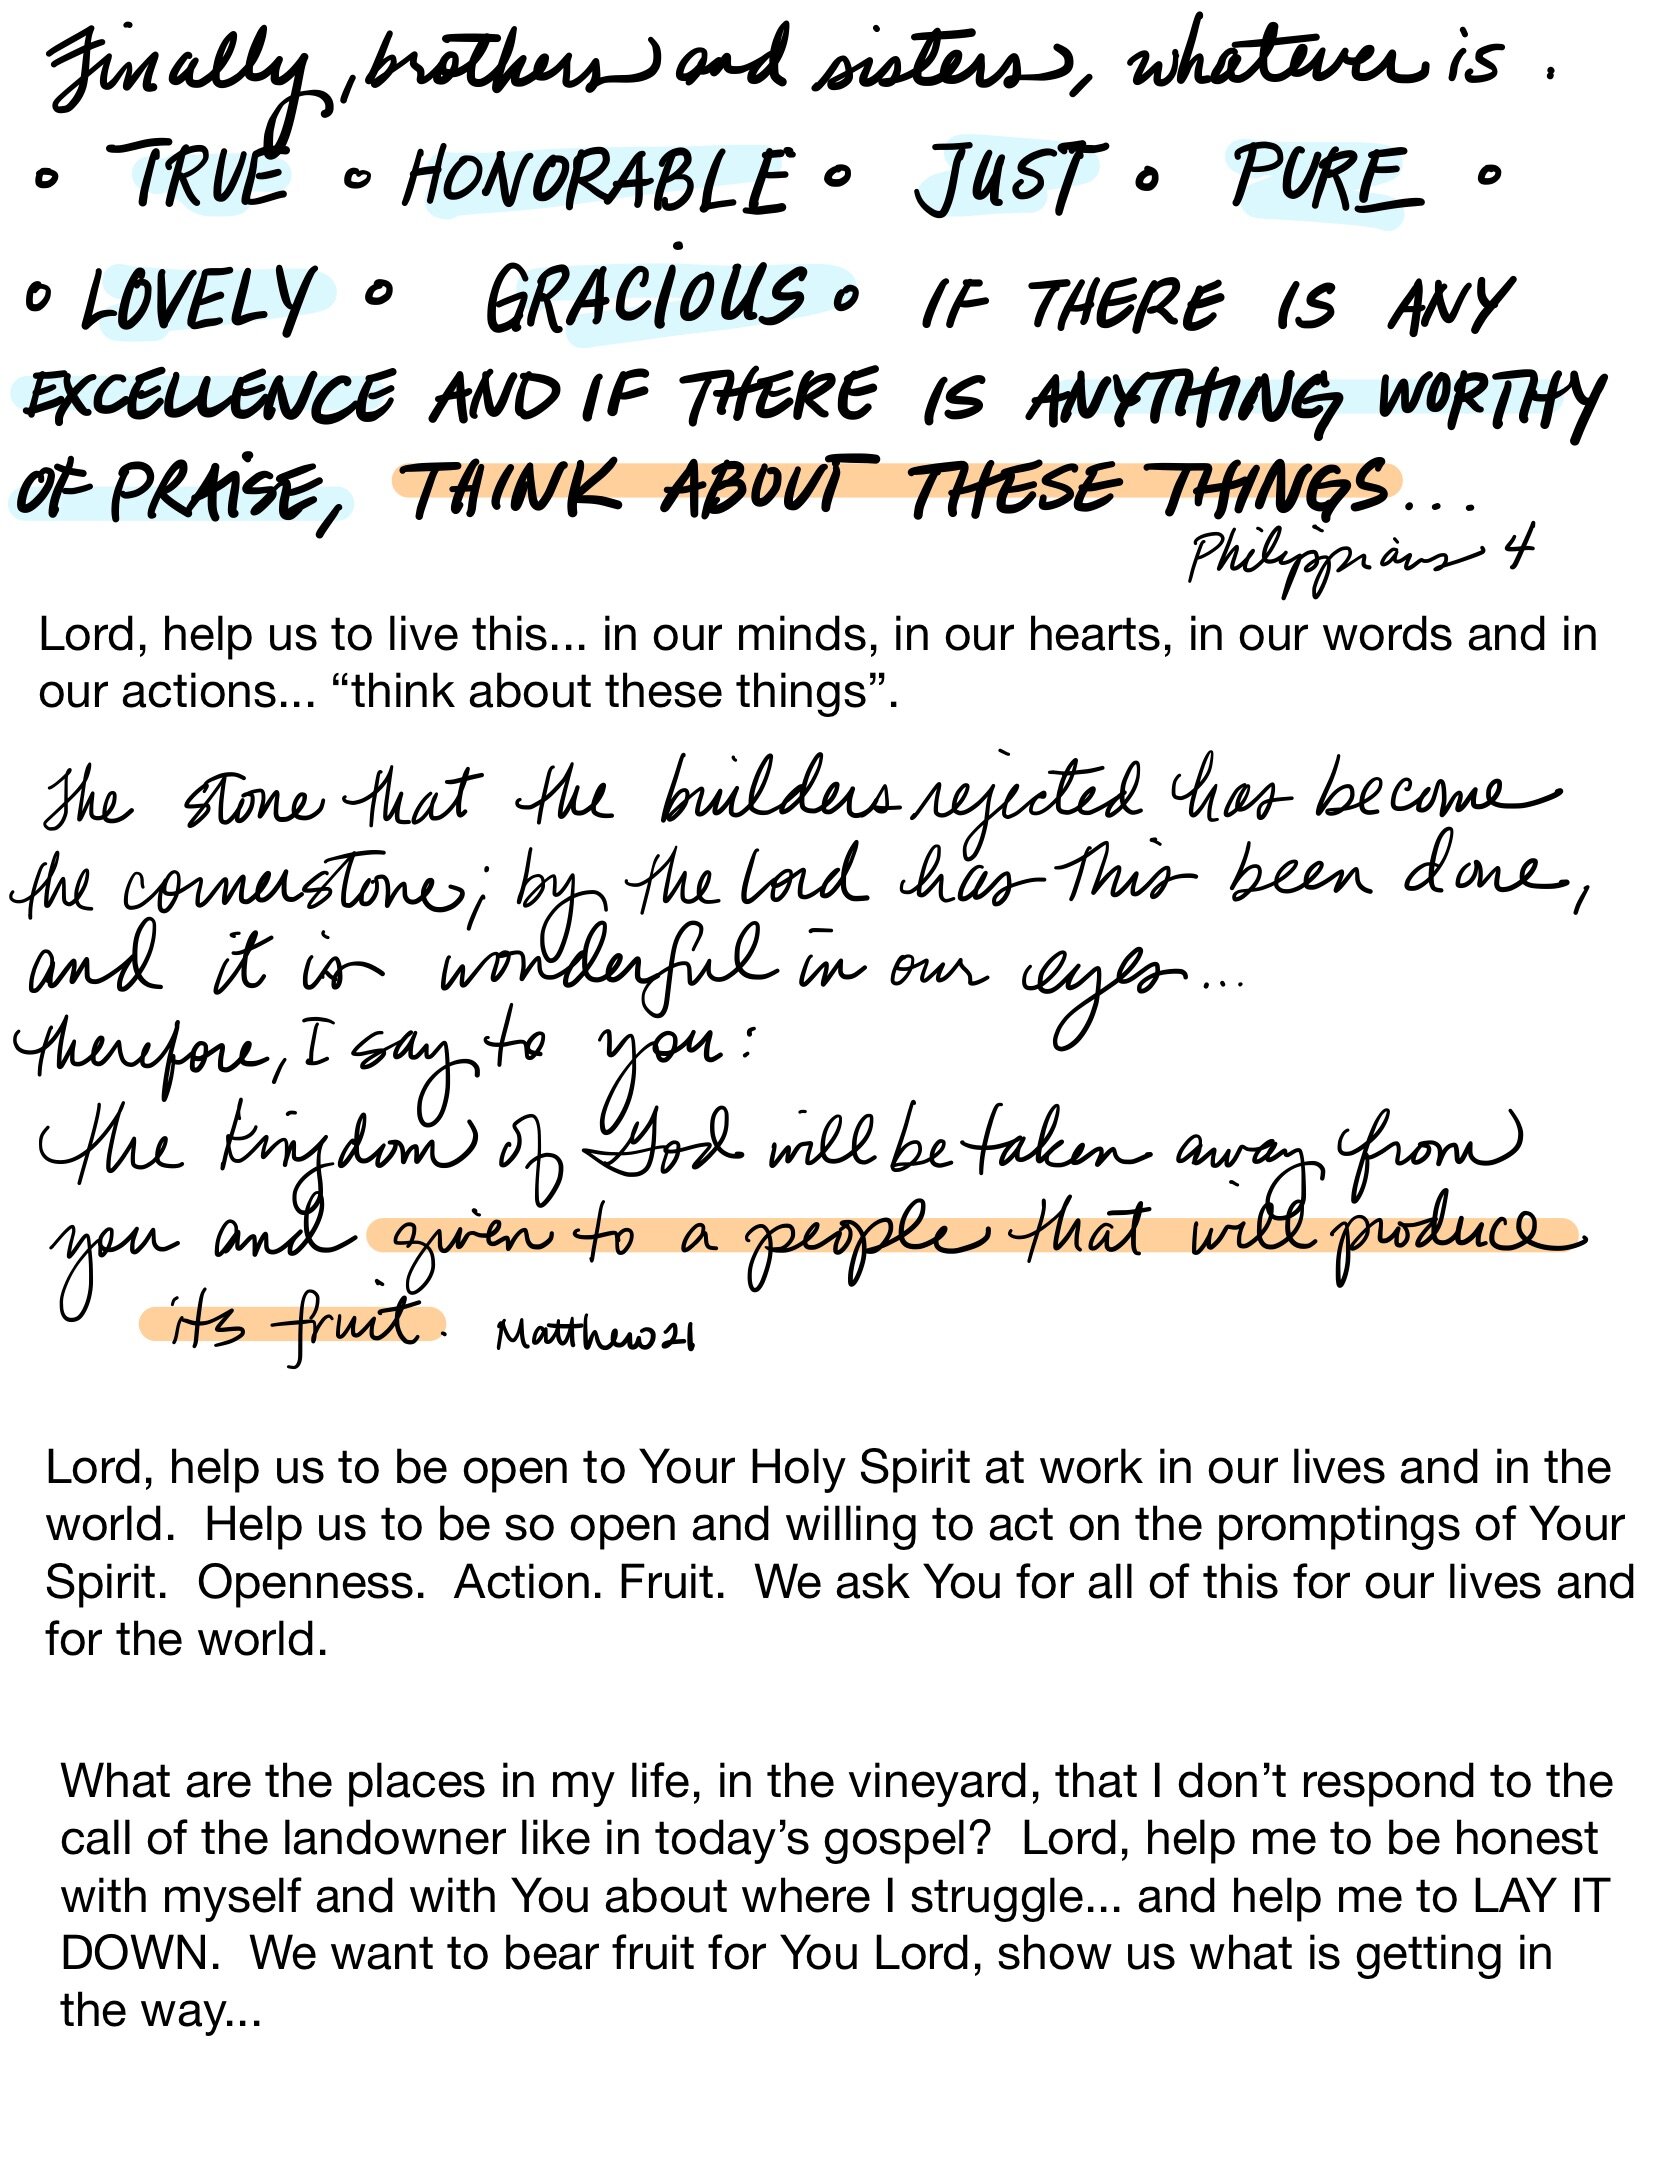 Finally, brothers and sisters, whatever is .
◦ TRUE ◦ HONORABLE ◦ JUST ◦ PURE ◦
◦ LOVELY ◦ GRACIOUS ◦ IF THERE IS ANY
EXCELLENCE AND IF THERE IS ANYTHING WORTHY
OF PRAISE, THINK ABOUT THESE THINGS...
Philippians 4
Lord, help us to live this... in our minds, in our hearts, in our words and in
our actions... “think about these things”.
The stone that the builders rejected has become
the cornerstone; by the Lord has this been done,
and it is wonderful in our eyes...
therefore, I say to you:
the kingdom of God will be taken away from
you and given to a people that will produce
its fruit. Matthew 21
Lord, help us to be open to Your Holy Spirit at work in our lives and in the
world.  Help us to be so open and willing to act on the promptings of Your
Spirit.  Openness.  Action. Fruit.  We ask You for all of this for our lives and
for the world.
What are the places in my life, in the vineyard, that I don’t respond to the
call of the landowner like in today’s gospel?  Lord, help me to be honest
with myself and with You about where I struggle... and help me to LAY IT
DOWN.  We want to bear fruit for You Lord, show us what is getting in
the way...